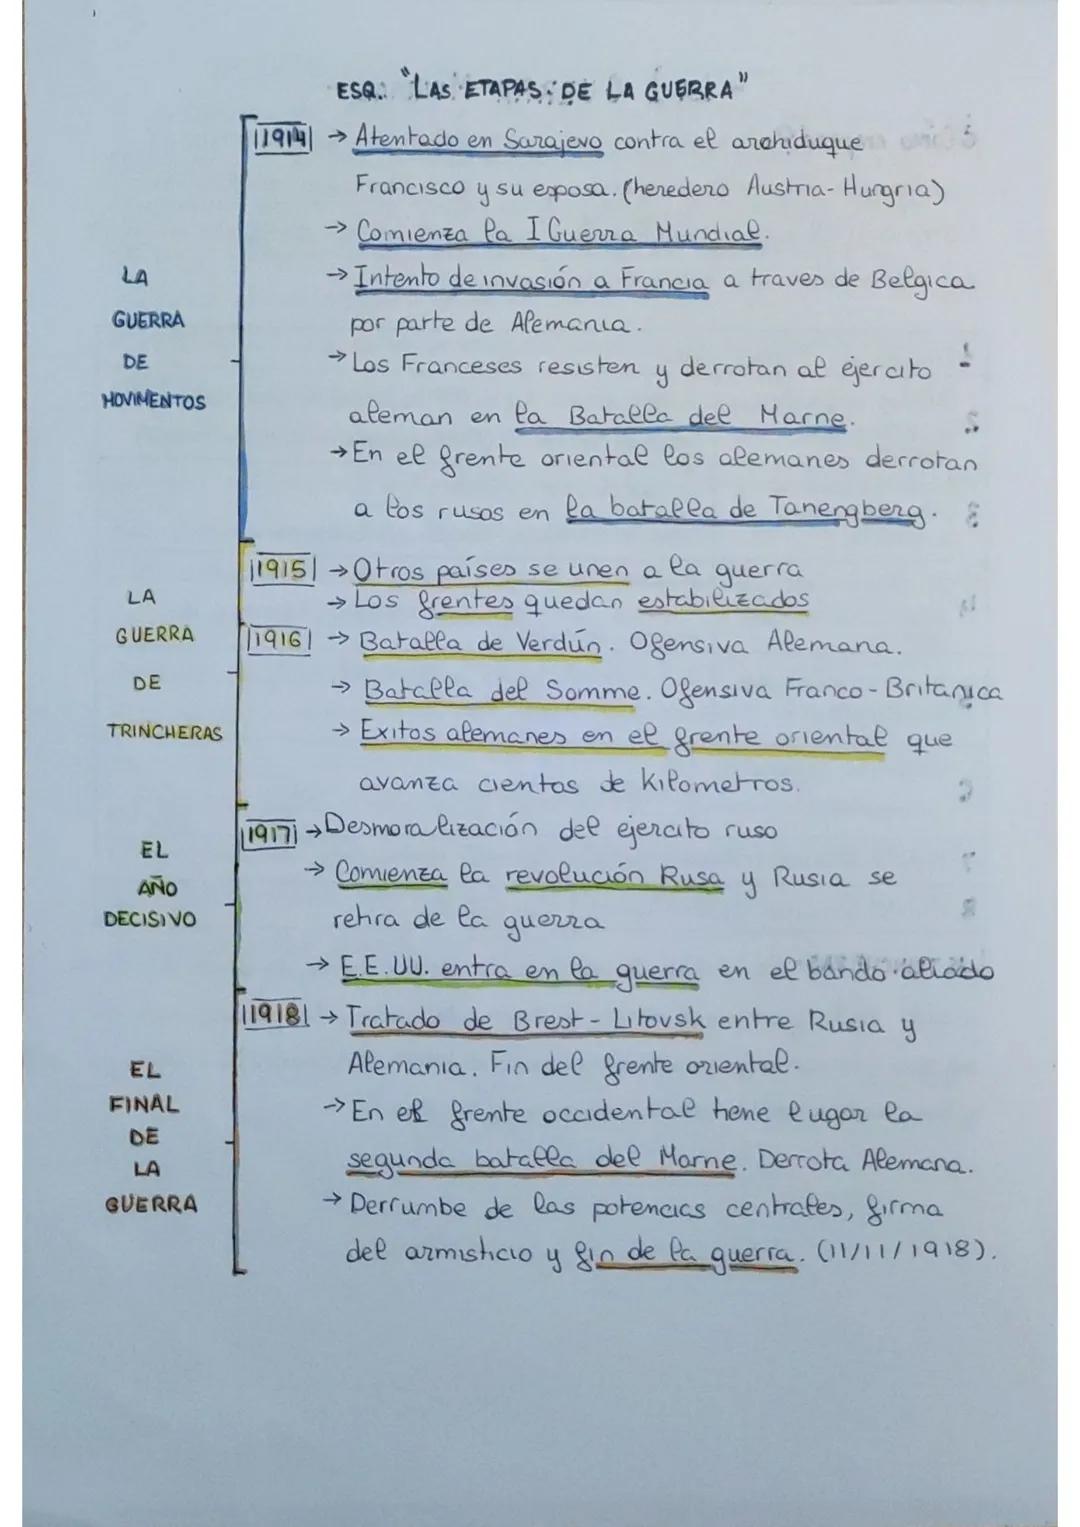 ESQ. "LAS ETAPAS DE LA GUERRA"
1914 → Atentado en Sarajevo contra el archiduque
Francisco y su esposa. (heredero Austria-Hungria)
→ Comienza la I Guerra Mundial.
LA
GUERRA
DE
MOVIMENTOS
→ Intento de invasión a Francia a traves de Belgica
por parte de Alemania.
→ Los Franceses resisten y derrotan al ejercito
aleman en la Batalla del Marne.
→ En el frente oriental los alemanes derrotan
a los rusos en la batalla de Tanengberg.
1915 → Otros países se unen a la guerra
→ Los frentes quedan estabilizados
LA
GUERRA
DE
TRINCHERAS
1916 → Batalla de Verdún. Ofensiva Alemana.
→ Batalla del Somme. Ofensiva Franco-Britanica
→ Exitos alemanes en el frente oriental que
avanza cientos de Kilometros.
EL
AÑO
DECISIVO
1917 → Desmoralización del ejercito ruso
→ Comienza la revolución Rusa y Rusia se
retira de la guerra
→ E.E.UU. entra en la guerra en el bando aliado
1918 → Tratado de Brest-Litovsk entre Rusia y
Alemania. Fin del frente oriental.
EL
FINAL
DE
LA
GUERRA
→ En el frente occidental tiene lugar la
segunda batalla del Marne. Derrota Alemana.
→ Derrumbe de las potencias centrales, firma
del armisticio y fin de la guerra. (11/11/1918).